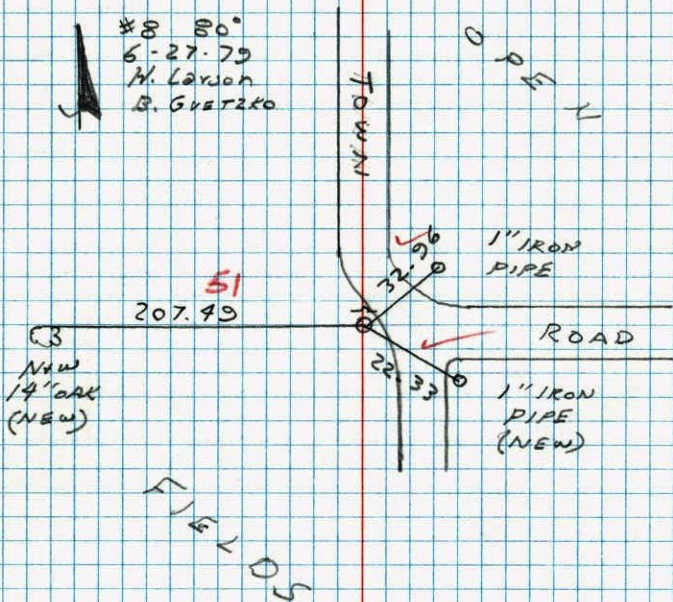 #8 80°
6-27-79
N. Larson
B. GUETZKO
OPEN
TOWN
32.96
1" IRON
PIPE
51
207.49
ROAD
22.33
14" OAK
(NEW)
1" IRON
PIPE
(NEW)
FIELDS